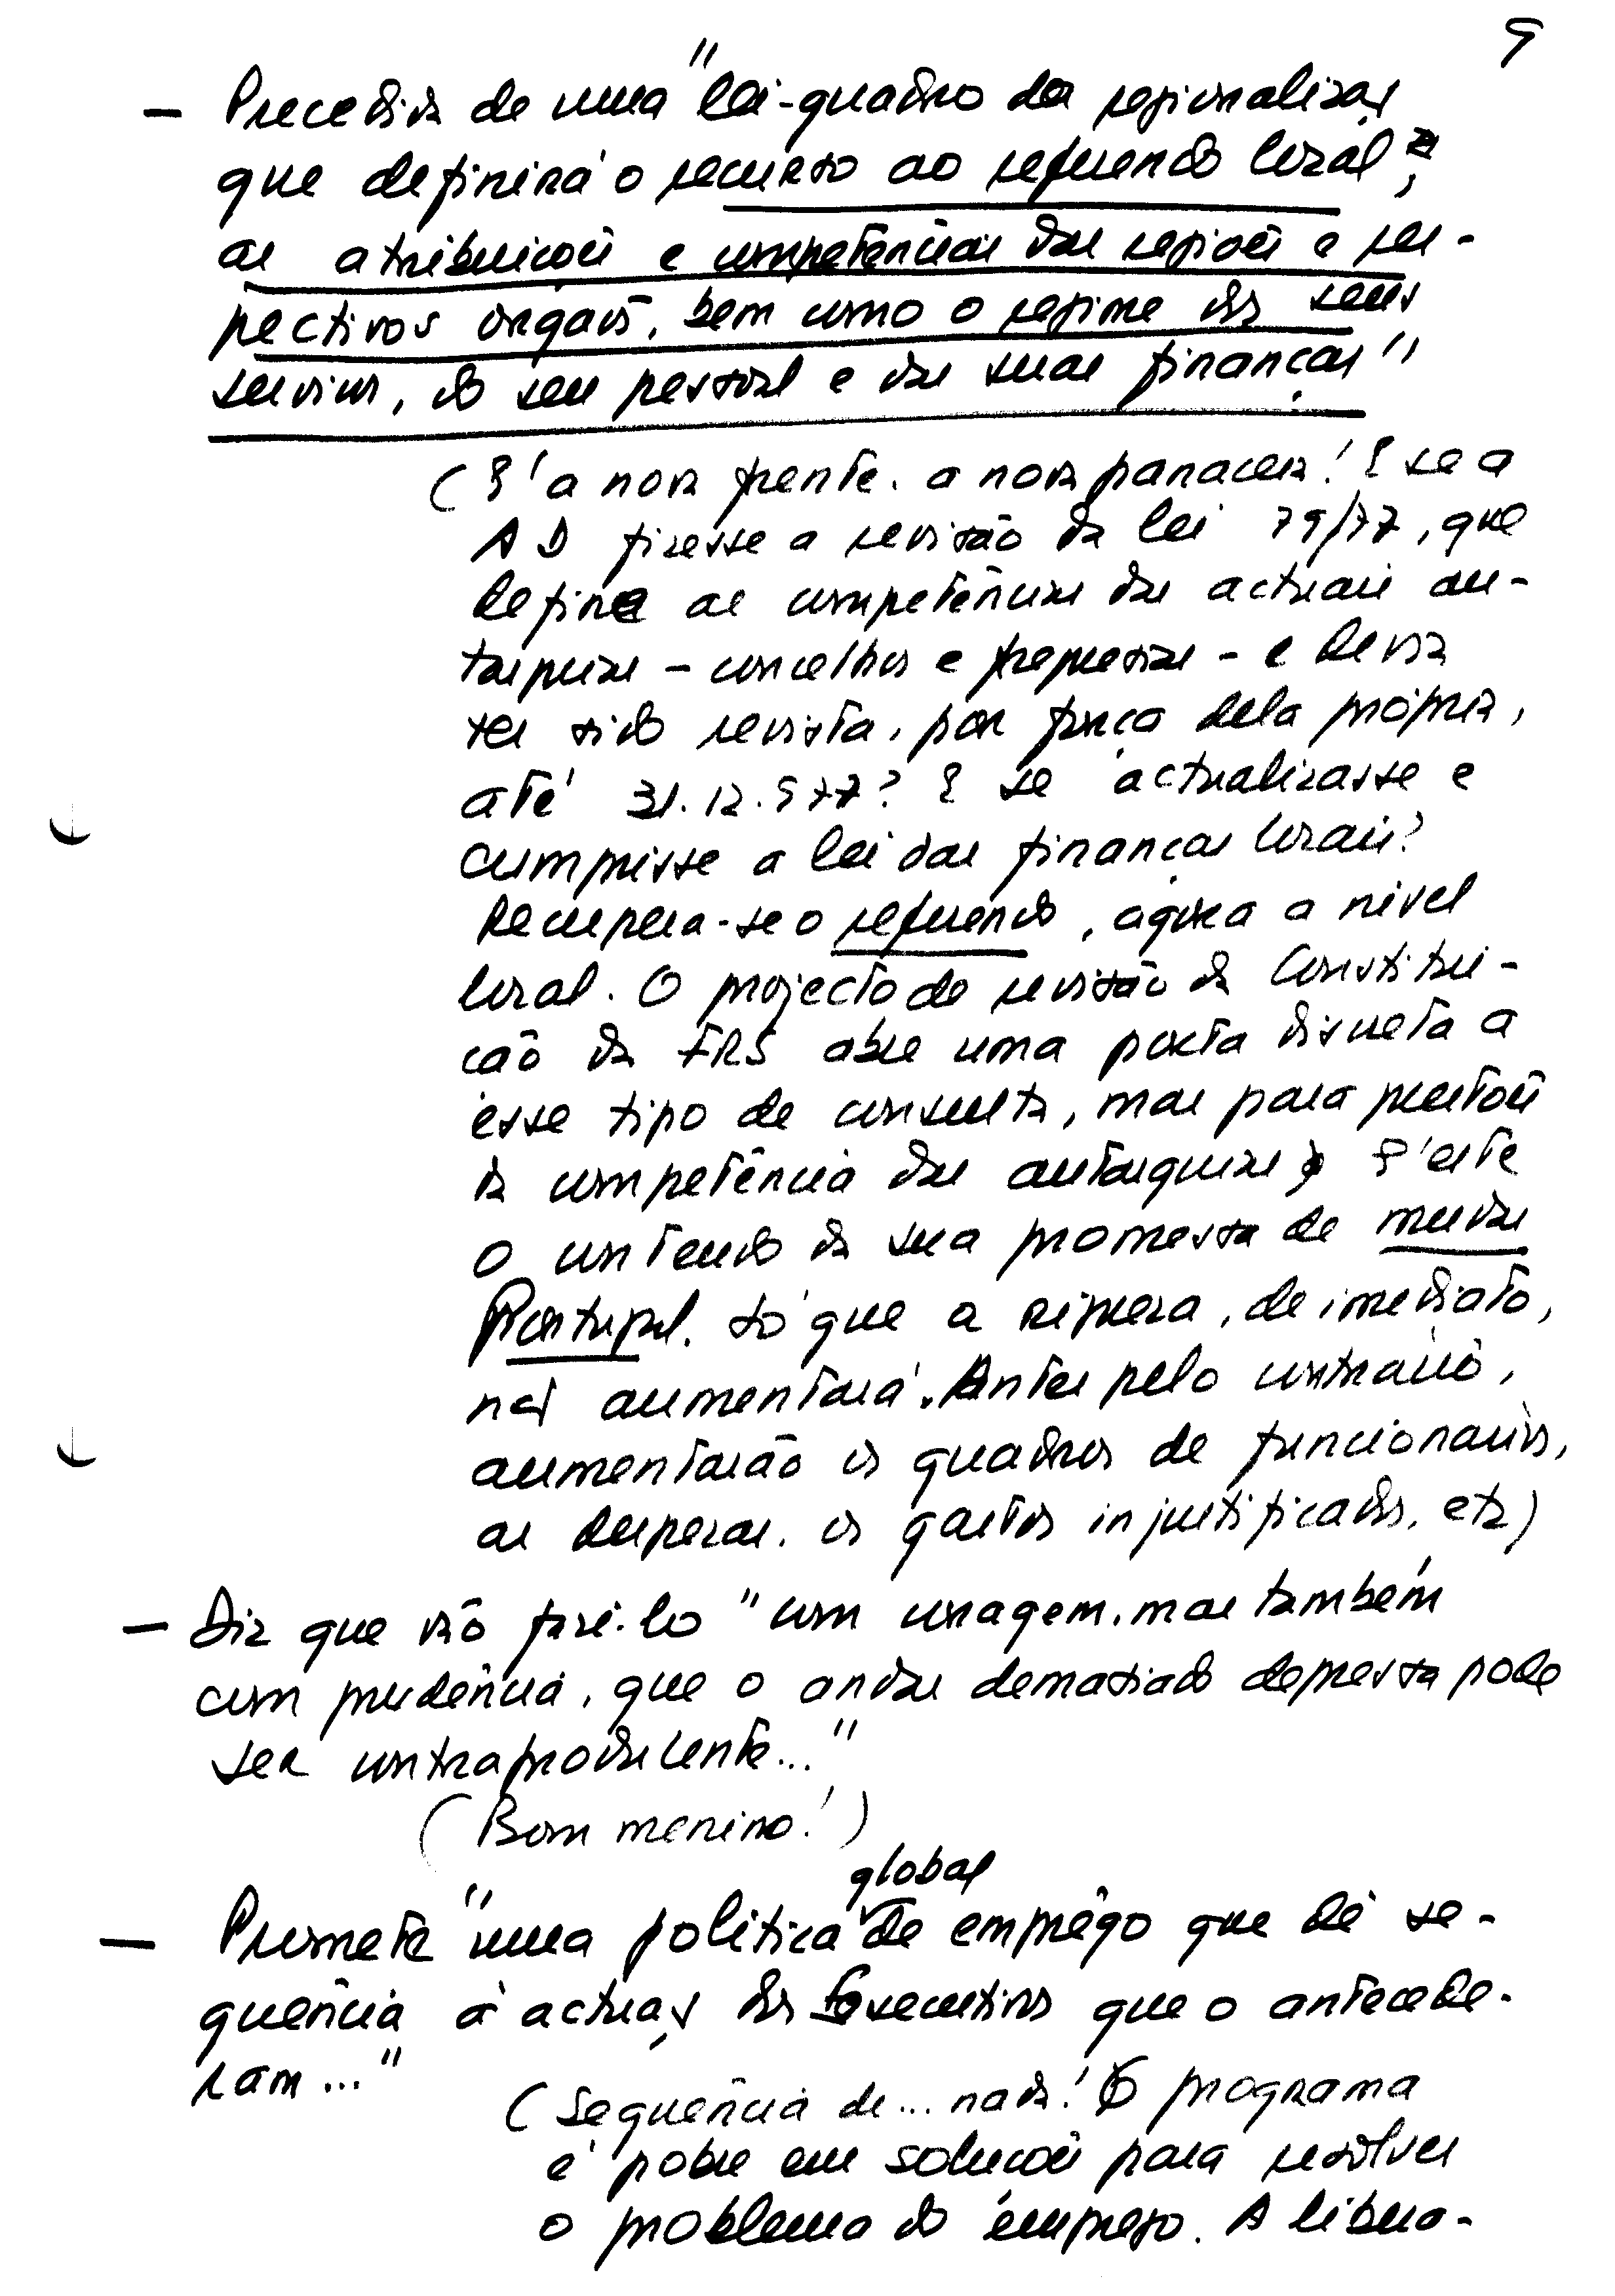 9
— Precedida de uma "lei-quadro da regionalização
que definirá o recurso ao referendo local,
as atribuições e competências das regiões e res-
pectivos órgãos, bem como o regime dos seus
serviços, do seu pessoal e das suas finanças"
(É a nova frente. a nova panaceia! E se a
AD fizesse a revisão da lei 79/77, que
define as competências das actuais au-
tarquias - concelhos e freguesias - e devia
ter sido revista, por força dela própria,
até 31.12.977? E se actualizasse e
cumprisse a lei das finanças locais?
Recupera-se o referendo, agora a nível
local. O projecto de revisão da Constitui-
ção da FRS abre uma porta discreta a
esse tipo de consulta, mas para questões
da competência das autarquias. É este
o conteúdo da sua promessa de mudar
Portugal. Só que a riqueza, de imediato,
não aumentará. Antes pelo contrário,
aumentarão os quadros de funcionários,
as despezas. os gastos injustificados, etc)
— Diz que vão fazê-lo "com coragem, mas também
com prudência, que o andar demasiado depressa pode
ser contraproducente..."
(Bom menino!)
global
— Promete "uma política de emprêgo que dê se-
quência à actuação dos Executivos que o antecede-
ram..."
(Sequência de... nada! O programa
é pobre em soluções para resolver
o problema do emprego. A libera-